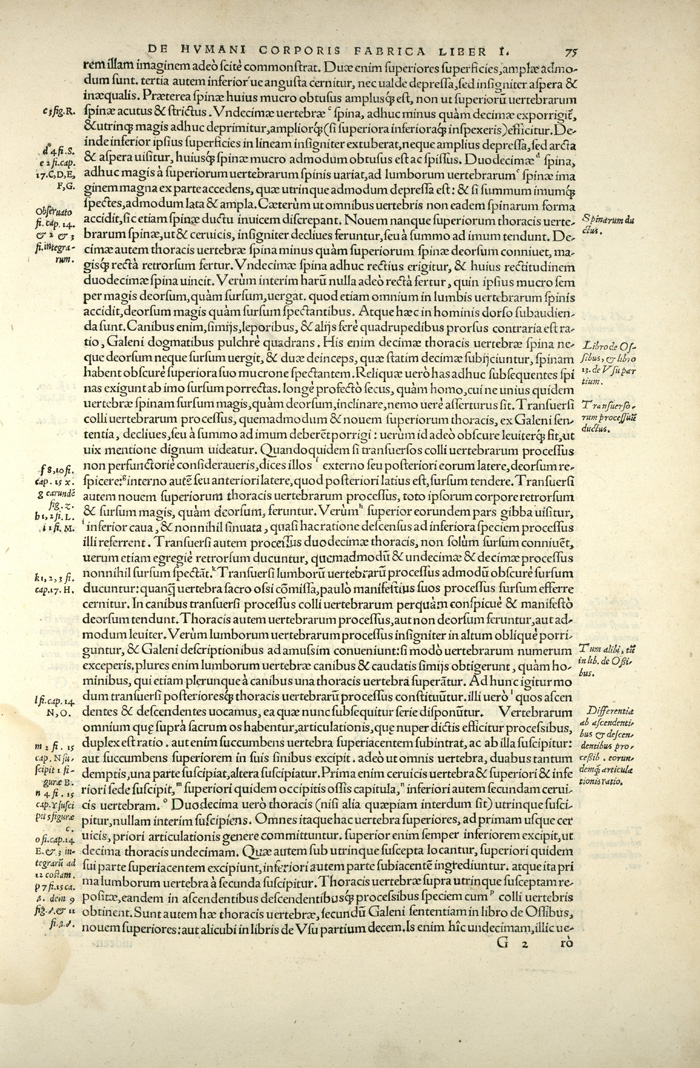 DE HVMANI CORPORIS FABRICA LIBER I. 75
rem illam imaginem adeò scitè commonstrat. Duæ enim superiores superficies, amplæ admo-
dum sunt. tertia autem inferior ue angusta cernitur, nec ualde depressa, sed insigniter aspera &
inæqualis. Præterea spinæ huius mucro obtusus amplusq́; est, non ut superiorũ uertebrarum
c 3 fig. R.
spinæ acutus & strictus. Vndecimæ uertebræ c spina, adhuc minus quàm decimæ exporrigit,
& utrinq; magis adhuc deprimitur, ampliorq́; (si superiora inferioraq́; inspexeris) efficitur. De-
inde inferior ipsius superficies in lineam insigniter extuberat, neque amplius depressa, sed arcta
d 4 fi. S.
& aspera uisitur, huiusq́; spinæ mucro admodum obtusus est ac spissus. Duodecimæ d spina,
e 2 fi. cap.
17. C, D, E,
adhuc magis à superiorum uertebrarum spinis uariat, ad lumborum uertebrarum e spinas ima
F, G.
ginem magna ex parte accedens, quæ utrinque admodum depressæ est: & si summum imumq́;
spectes, admodum lata & ampla. Cæterùm ut omnibus uertebris non eadem spinarum forma
Obseruato
fi. cap. 14.
& 2 & 3
fi. integra-
rum.
accidit, sic etiam spinæ ductu inuicem discrepant. Nouem nanque superiorum thoracis uerte-
Spinarum du
ctus.
brarum spinæ, ut & ceruicis, insigniter decliues feruntur, seu à summo ad imum tendunt. De-
cimæ autem thoracis uertebræ spina minus quàm superiorum spinæ deorsum conniuet, ma-
gisq́; rectà retrorsum fertur. Vndecimæ spina adhuc rectius erigitur, & huius rectitudinem
duodecimæ spina uincit. Verùm interim harũ nulla adeò rectà fertur, quin ipsius mucro sem
per magis deorsum, quàm sursum, uergat. quod etiam omnium in lumbis uertebrarum spinis
accidit, deorsum magis quàm sursum spectantibus. Atque hæc in hominis dorso subaudien-
da sunt. Canibus enim, simijs, leporibus, & alijs ferè quadrupedibus prorsus contraria est ra-
tio, Galeni dogmatibus pulchrè quadrans. His enim decimæ thoracis uertebræ spina ne-
Libro de Os-
sibus, & libro
13. de Vsu par
tium.
que deorsum neque sursum uergit, & duæ deinceps, quæ statim decimæ subijciuntur, spinam
habent obscurè superiora suo mucrone spectantem. Reliquæ uerò has adhuc subsequentes spi
nas exigunt ab imo sursum porrectas. longè profectò secus, quàm homo, cui ne unius quidem
uertebræ spinam sursum magis, quàm deorsum, inclinare, nemo uerè asserturus sit. Transuersi
Transuerso-
rum processuũ
ductus.
colli uertebrarum processus, quemadmodum & nouem superiorum thoracis, ex Galeni sen-
tentia, decliues, seu à summo ad imum deberẽt porrigi: uerùm id adeò obscurè leuiterq́; fit, ut
uix mentione dignum uideatur. Quandoquidem si transuersos colli uertebrarum processus
f 8, 10 fi.
cap. 15 x.
non perfunctoriè consideraueris, dices illos f externo seu posteriori eorum latere, deorsum re-
g earundẽ
fig. z.
spicere: g interno autẽ seu anteriori latere, quod posteriori latius est, sursum tendere. Transuersi
autem nouem superiorum thoracis uertebrarum processus, toto ipsorum corpore retrorsum
h 1, 2 fi. L.
& sursum magis, quàm deorsum, feruntur. Verùm h superior eorundem pars gibba uisitur,
i 1 fi. M.
i inferior caua, & nonnihil sinuata, quasi hac ratione descensus ad inferiora speciem processus
illi referrent. Transuersi autem processus duodecimæ thoracis, non solùm sursum conniuẽt,
uerum etiam egregiè retrorsum ducuntur, quemadmodũ & undecimæ & decimæ processus
k 1, 2, 3 fi.
cap. 17. H.
nonnihil sursum spectãt. k Transuersi lumborũ uertebrarũ processus admodũ obscurè sursum
ducuntur: quanq̃ uertebra sacro ossi cõmissa, paulò manifestius suos processus sursum efferre
cernitur. In canibus transuersi processus colli uertebrarum perquàm conspicuè & manifestò
deorsum tendunt. Thoracis autem uertebrarum processus, aut non deorsum feruntur, aut ad-
modum leuiter. Verùm lumborum uertebrarum processus insigniter in altum obliquè porri-
guntur, & Galeni descriptionibus ad amussim conueniunt: si modò uertebrarum numerum
Tum alibi, tũ
in lib. de Ossi-
bus.
exceperis. plures enim lumborum uertebræ canibus & caudatis simijs obtigerunt, quàm ho-
minibus, qui etiam plerunque à canibus una thoracis uertebra superãtur. Ad hunc igitur mo
l fi. cap. 14
N, O.
dum transuersi posterioresq́; thoracis uertebrarũ processus constituũtur. illi uerò l quos ascen
dentes & descendentes uocamus, ea quæ nunc subsequitur serie disponũtur. Vertebrarum
Differentia
ab ascendenti-
bus & descen-
dentibus pro-
cessib. eorun-
demq́; articula
tionis ratio.
omnium quę suprà sacrum os habentur, articulationis, quę nuper dictis efficitur processibus,
duplex est ratio. aut enim succumbens uertebra superiacentem subintrat, ac ab illa suscipitur:
m 2 fi. 15
cap. N su-
scipit 1 fi-
guræ B.
aut succumbens superiorem in suis sinibus excipit. adeò ut omnis uertebra, duabus tantum
demptis, una parte suscipiat, altera suscipiatur. Prima enim ceruicis uertebra & superiori & infe
n 4 fi. 15
cap. Y susci
pit 5 figuræ
c.
riori sede suscipit, m superiori quidem occipitis ossis capitula, n inferiori autem secundam cerui-
cis uertebram. o Duodecima uerò thoracis (nisi alia quæpiam interdum sit) utrinque susci-
pitur, nullam interim suscipiens. Omnes itaque hac uertebra superiores, ad primam usque cer
o fi. cap. 14
E. & 3 in-
tegrarũ ad
12 costam.
uicis, priori articulationis genere committuntur. superior enim semper inferiorem excipit, ut
decima thoracis undecimam. Quæ autem sub utrinque suscepta locantur, superiori quidem
sui parte superiacentem excipiunt, inferiori autem parte subiacentẽ ingrediuntur. atque ita pri
p 7 fi. 15 ca.
β. dem 9
fig. δ. & 11
fi. β. δ.
ma lumborum uertebra à secunda suscipitur. Thoracis uertebræ supra utrinque susceptam re-
positæ, eandem in ascendentibus descendentibusq́; processibus speciem cum p colli uertebris
obtinent. Sunt autem hæ thoracis uertebræ, secundũ Galeni sententiam in libro de Ossibus,
nouem superiores: aut alicubi in libris de Vsu partium decem. Is enim hîc undecimam, illic ue-
G 2 rò